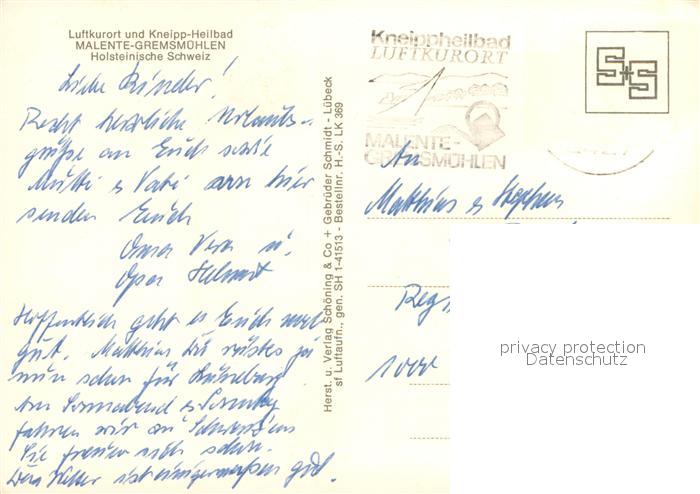 Luftkurort und Kneipp-Heilbad
MALENTE-GREMSMÜHLEN
Holsteinische Schweiz
Liebe Kinder!
Recht herzliche Urlaubs-
grüße an Euch sowie
Mutti & Vati von hier
senden Euch
Oma Vera u.
Opa Helmut
Hoffentlich geht es Euch
gut. Matthias Du rüstest ja
nun schon für
Am Sonnabend & Sonntag
fahren wir zu
Sie freuen sich schon.
Das Wetter ist einigermaßen gut.
Herst. u. Verlag Schöning & Co + Gebrüder Schmidt - Lübeck
sf Luftaufn., gen. SH 1-41513 - Bestellnr. H.-S. LK 369
Kneippheilbad
LUFTKURORT
MALENTE-
GREMSMÜHLEN
S+S
An
Matthias & Stephan
Regi
1000
privacy protection
Datenschutz